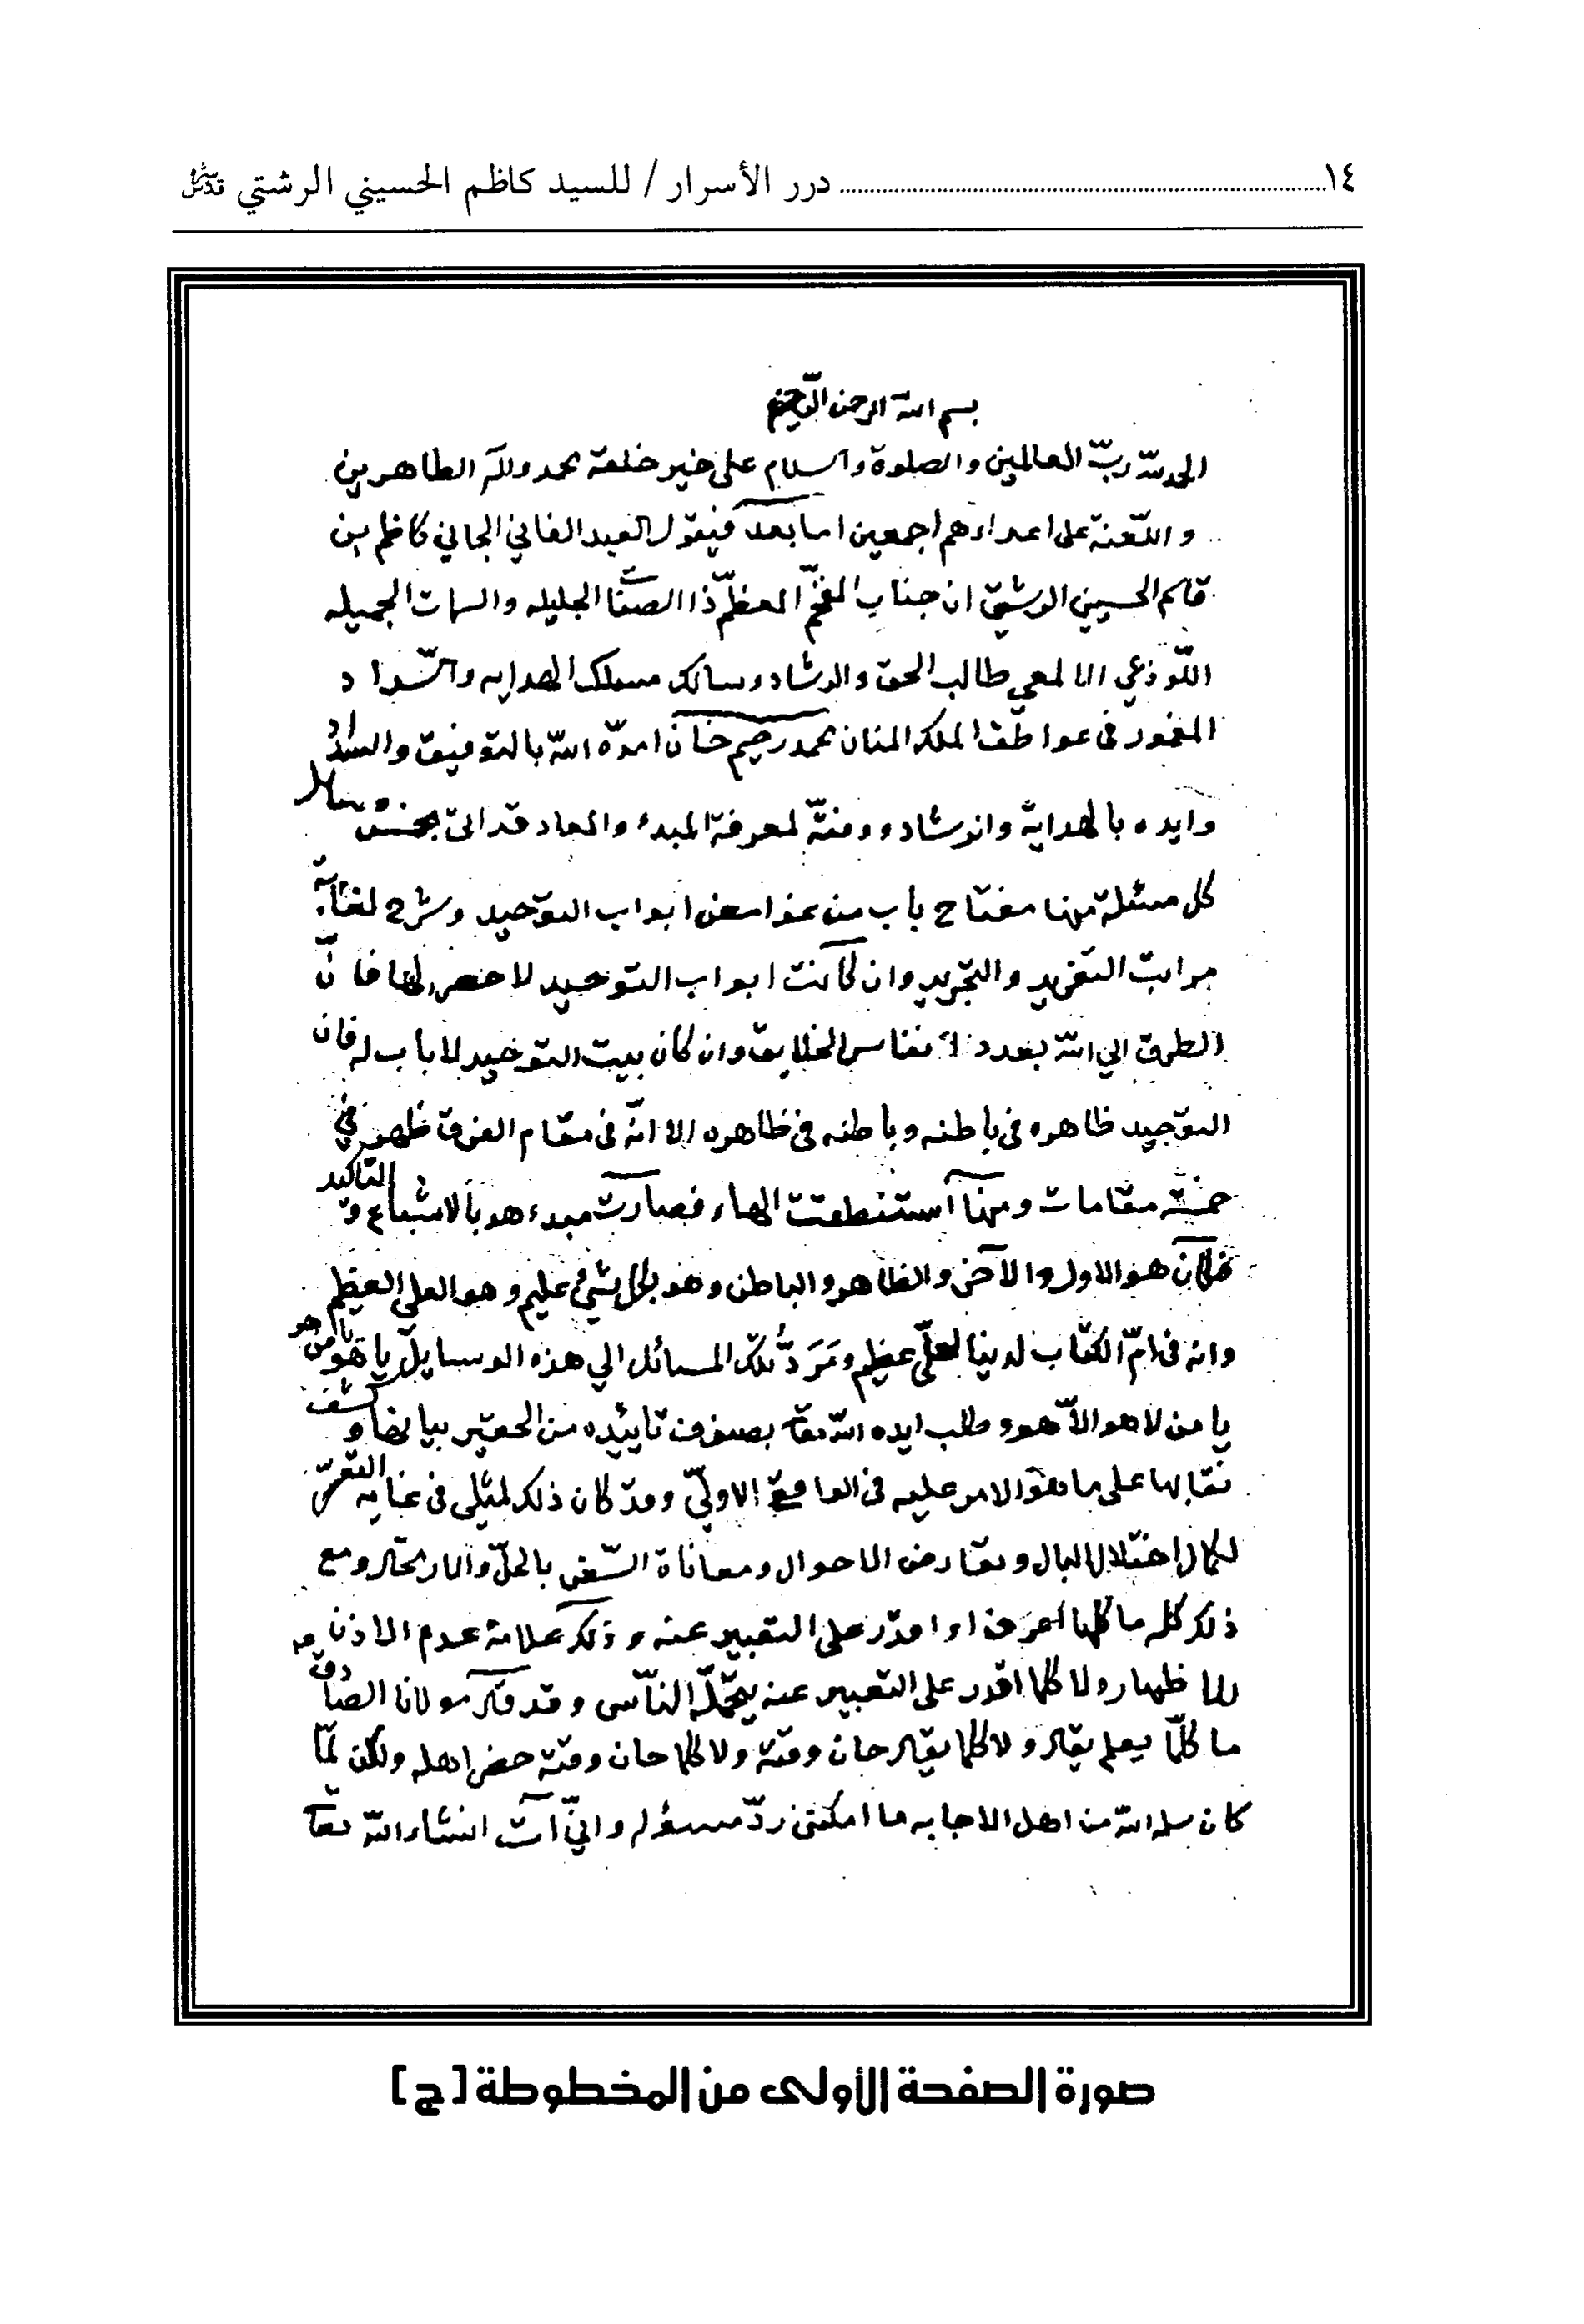 ١٤ ........ درر الأسرار / للسيد كاظم الحسيني الرشتي
بسم الله الرحمن الرحيم
الحمد لله ربّ العالمين والصلوة والسلام على خير خلقه محمد وآله الطاهرين
واللّعنة على اعداءهم اجمعين اما بعد فيقول العبد الفاني الجاني كاظم بن
قاسم الحسيني الرشتي ان جناب المفخّم المعظّم ذا الصفا الجليله والسمات الجميله
اللّوذعي الالمعي طالب الحق والرشاد وسالك مسلك الهدايه والسّداد
المغمور في عواطف الملك المنان محمد رحيم خان امدّه الله بالتوفيق والسداد
وايده بالهداية والرشاد ووفقّه لمعرفة المبدء والمعاد قد اتى بخمس مسائل
كل مسئلة منها مفتاح باب من غوامض ابواب التوحيد وشرح لغاية
مراتب التفريد والتجريد وان كانت ابواب التوحيد لا حصر لها فانّ
الطرق الى الله بعدد انفاس الخلايق وان كان بيت التوحيد لا باب له فان
التوحيد ظاهره في باطنه وباطنه في ظاهره الا انّه في مقام الفرق ظهر في
خمسة مقامات ومنها استنطقت الهاء فصارت مبدء هو بالاشباع و التاكيد
فكان هو الاول والآخر والظاهر والباطن وهو بكل شيء عليم وهو العلي العظيم
وانه في امّ الكتاب لدينا لعلّي عظيم ومَرَدُّ تلك المسائل الى هذه الوسايل يا هو يا من هو
يا من لا هو الّا هو وطلب ايده الله تعا بصنوف تاييده من الحقير بيانها و كشف
نقابها على ما هو الامر عليه في الواقع الاوليّ وقد كان ذلك لمثلي في غاية التعسّر
لكمال اختلال البال وتعارض الاحوال ومعاناة السّفر بالحلّ والارتحال ومع
ذلك كله ما كلما اعرف اقدر على التعبير عنه وذلك علامة عدم الاذن فيه
للاظهار ولا كلما اقدر على التعبير عنه يتحمّله الناس وقد قال مولانا الصادق
ما كلّما يعلم يقال ولا كلما يقال حان وقته ولا كلما حان وقته حضر اهله ولكن لمّا
كان سلمه الله من اهل الاجابه ما امكنني ردّ مسئوله وانّي آت انشاء الله تعا
صورة الصفحة الأولى من المخطوطة [ج]